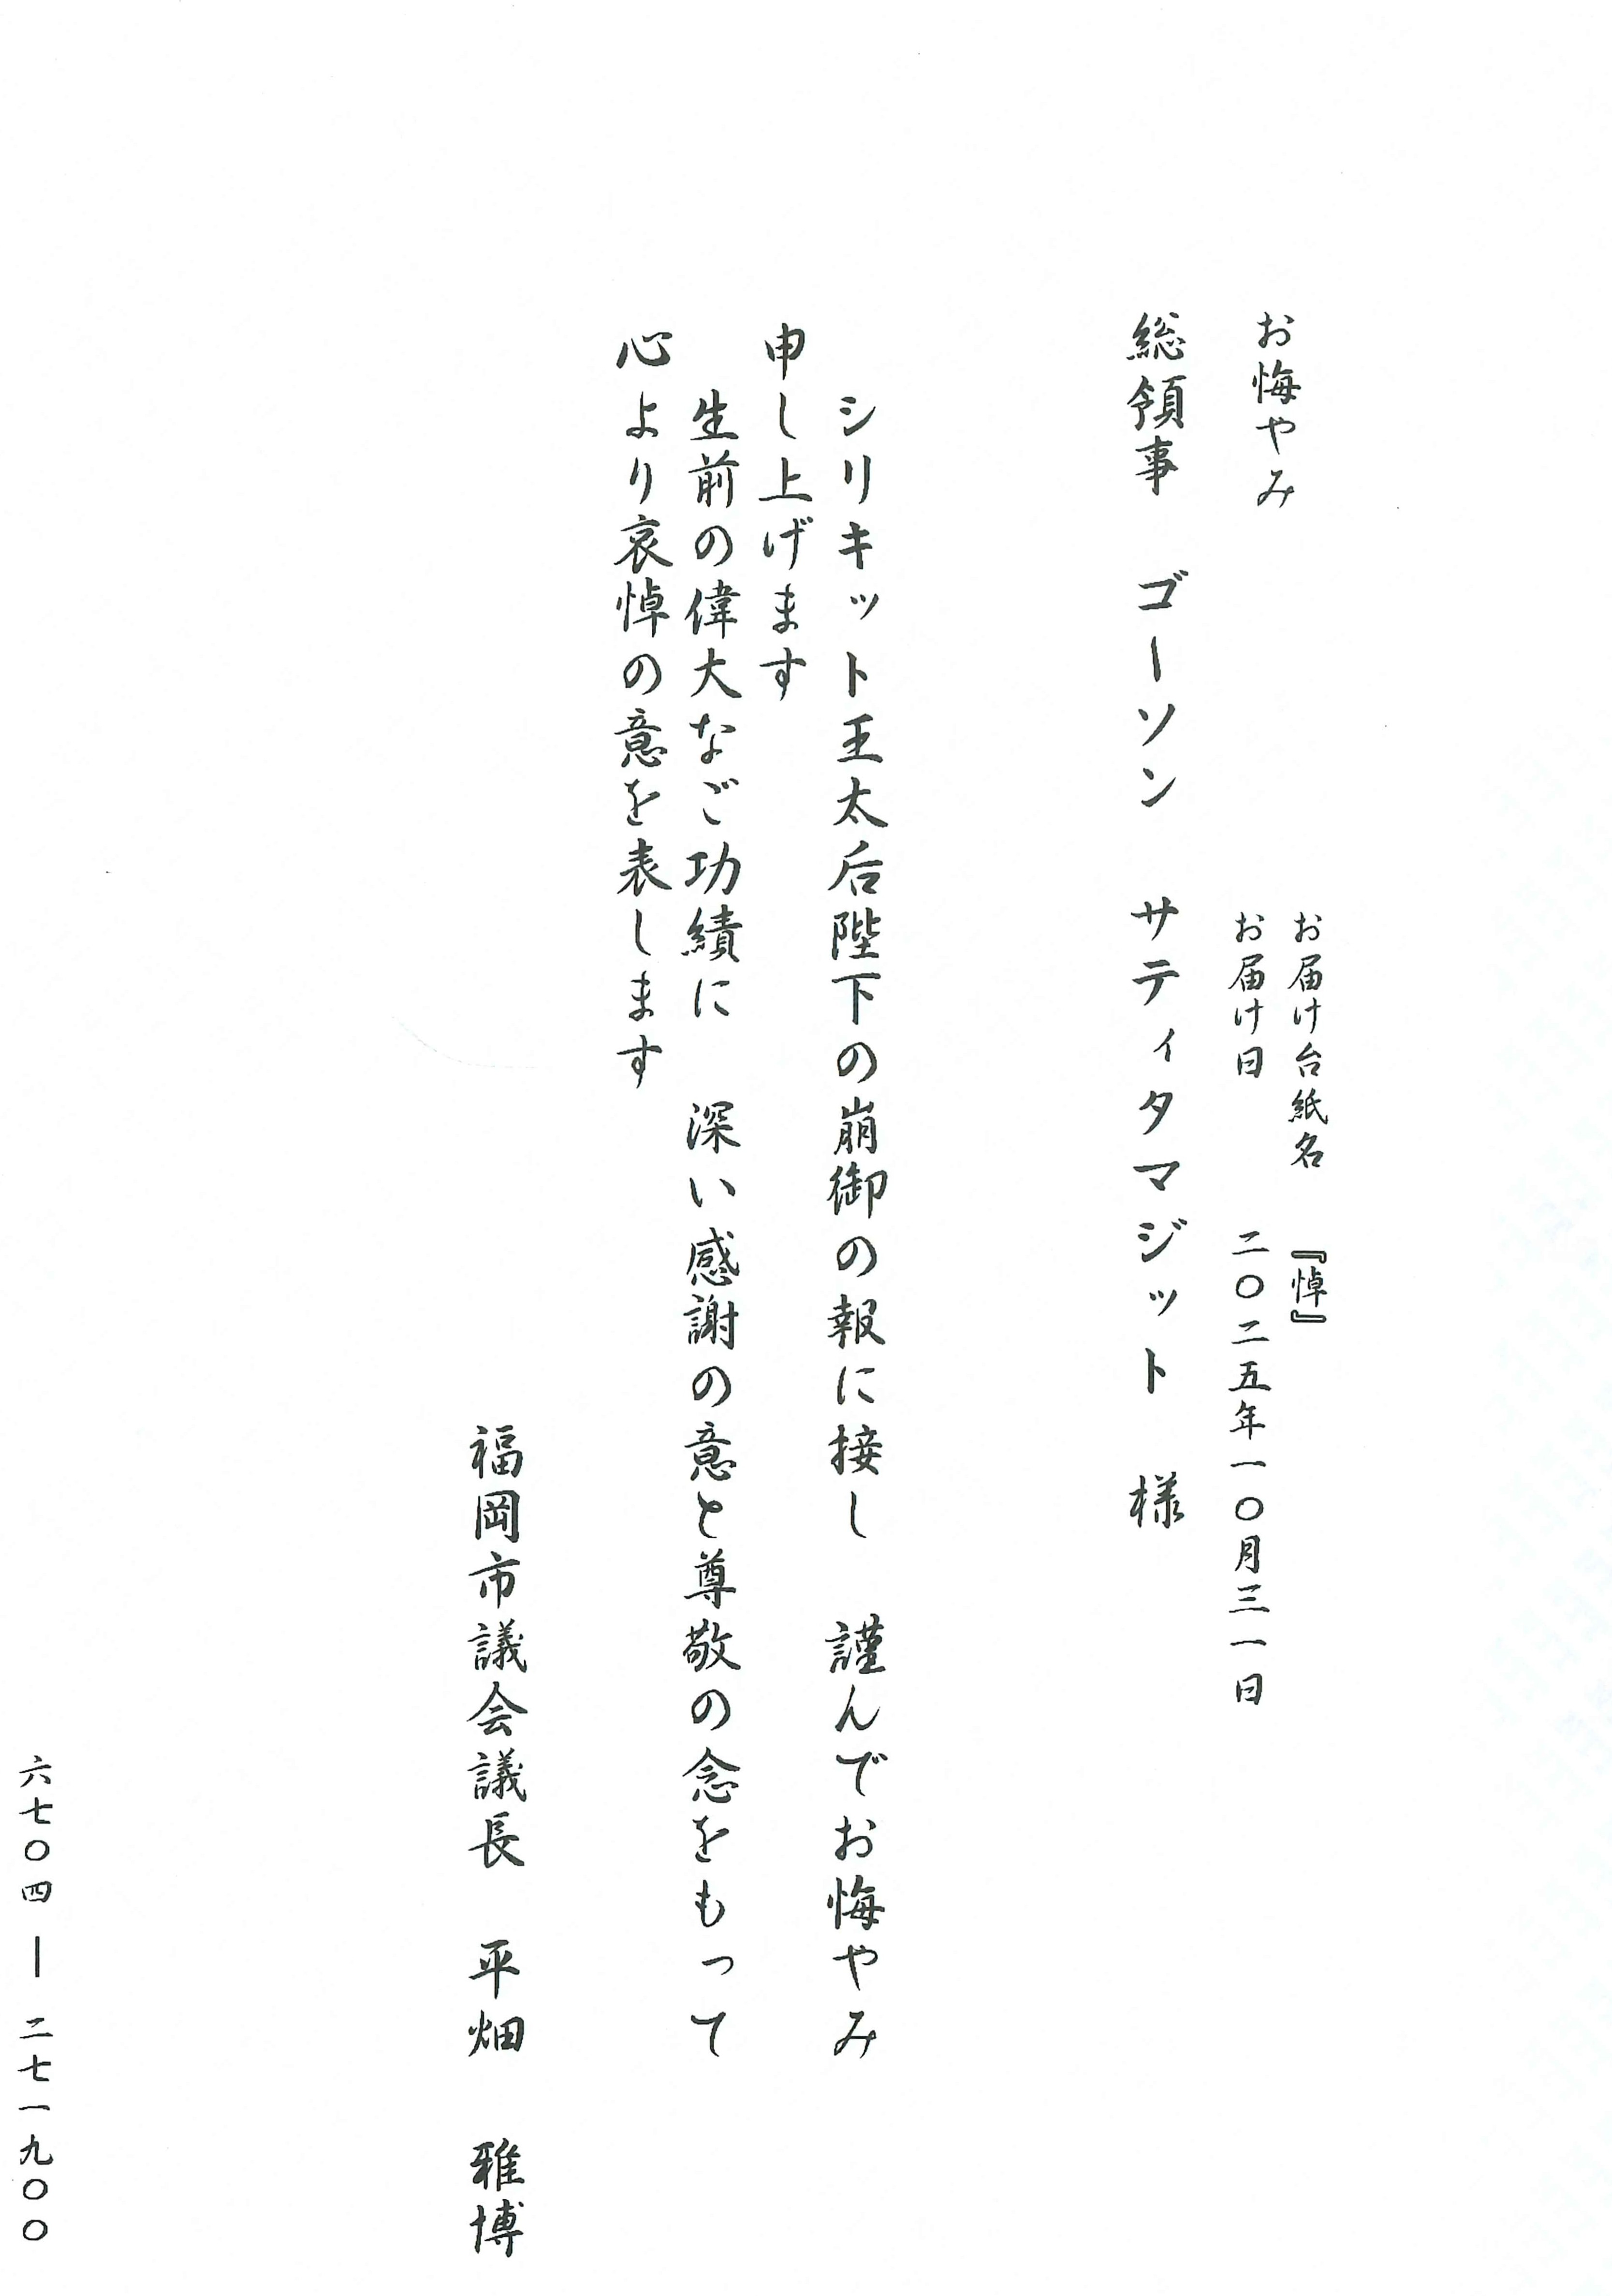 お届け台紙名　『悼』
お悔やみ　お届け日　二〇二五年一〇月三一日
総領事　ゴーソン　サティタマジット　様
シリキット王太后陛下の崩御の報に接し　謹んでお悔やみ
申し上げます
生前の偉大なご功績に　深い感謝の意と尊敬の念をもって
心より哀悼の意を表します
福岡市議会議長　平畑　雅博
六七〇四―二七一九〇〇